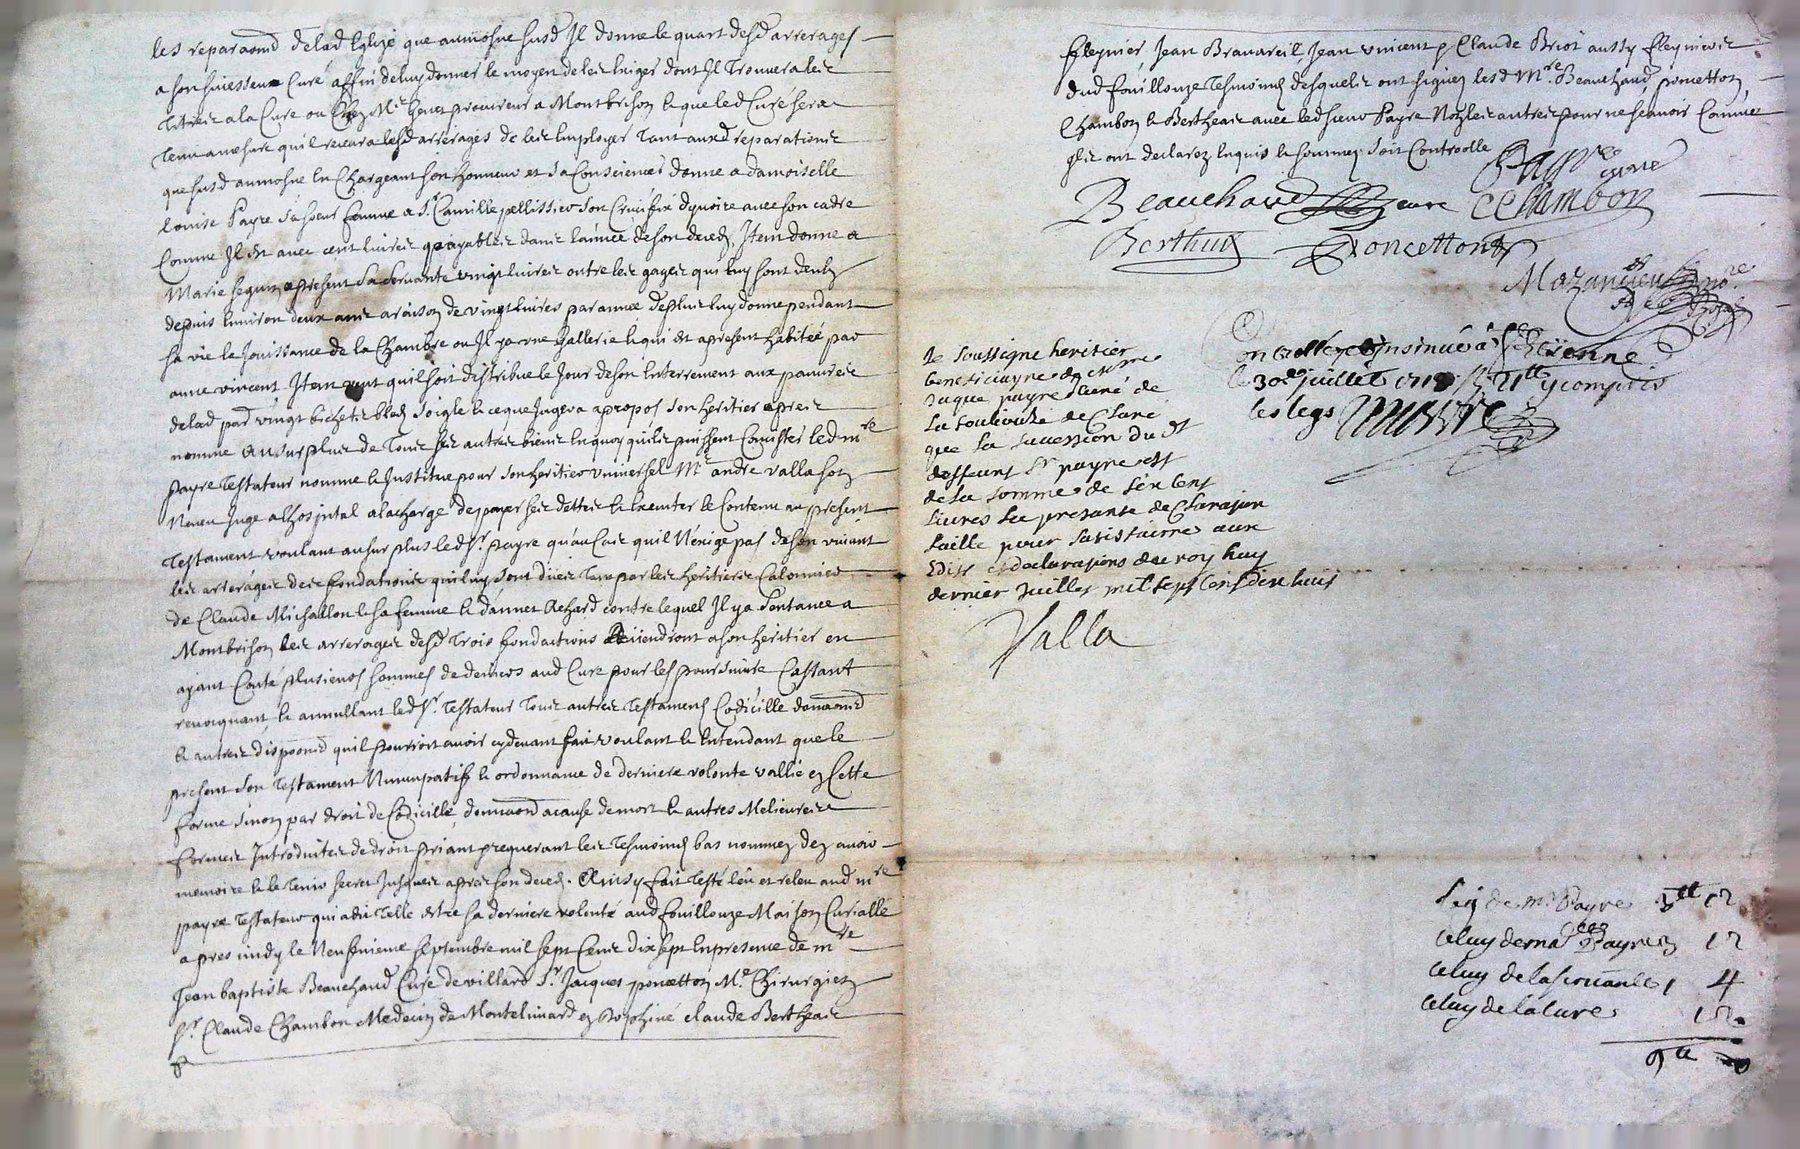 les reparaond delad Esglize que aumosne susd Il donne le quart desd arrerages
a son suiesseur Curé affin deluy donner le moyen de les exiger dont Il trouvera les
titres a la Cure ou Chez Mr procureur a Montbrison le que led Curé sera
tenu amesure quil recevra lesd arrerages de les employer tant auxd reparations
que susd aumosne en Chargeant son honneur et sa Conscience donne a damoiselle
louise Payre sa soeur femme a Sr Camille pellissier son Crucifix dyvoire avec son cadre
Comme Il Est avec cent livres payables dans lannée de son deced, Item donne a
Marie seguin apresent sa servante vingt livres outre les gages qui luy sont deubz
depuis Environ deux ans araison de vingt livres par année deplus luy donne pendant
sa vie la Jouissance de la Chambre ou Il ya une gallerie le qui est apresent habitée par
anne vincent Item veut quil soit distribue le Jour de son Enterrement aux pauvres
delad par vingt bichets bled soigle le ceque Jugera a propos son heritier apres
nommé Au surplus de tous ses autres biens En quoy quils puissent Consister led mre
payre Testateur nomme le Institue pour son heritier universel Mr andré valla son
Neveu Juge alhospital alacharge de payer ses dettes le Executer le Contenu au present
testament voulant au surplus led Sr payre quau Cas quil Nexige pas de son vivant
les arrerages des fondations quiluy sont dües tant par les heritiers Calomier
de Claude Michallon le sa femme le dannet Achard contre lequel Il ya Sentance a
Montbrison les arrerages desd trois fondations Reviendront a son heritier en
ayant Conté plusieurs sommes de deniers aud Curé pour les poursuivre Cassant
revocquant le annullant led Sr Testateur tous autres testamens Codicille donnaond
le autres disposond quil pourroit avoir cydevant fait voulant le Entendant que le
present son testament Nuncupatif le ordonnance de derniere volonte vallie en Cette
forme sinon par droit de Codicille, donnaond acause de mort le autres Meilieures
formes Introduites de droit priant requerant les tesmoins bas nommez dez avoir
memoire le le tenir secret Jusques apres son deced. Ainsy fait testé leu et releu aud mre
payre testateur qui a dit telle estre sa derniere volonté aud fouillouze Maison Curialle
apres midy le Neufvieme septembre mil sept Cens dix sept En presence de mre
Jean baptiste Beauchaud Curé de villars Sr Jacques poncetton Me Chirurgien
Sr Claude Chambon Medecin de Montelimard en Dophiné claude Bertheas
Jean Bravareil, Jean vincent Claude Briot aussy
dud fouillouze tesmoins desquels ont signez lesd Mre Beauchaud, poncetton
Chambon le Bertheas avec led sieur Payre Non les autres pour ne scavoir Comme
Ils ont declarez Enquis le sommez soit Controolle
Payre
Beauchaud Curé CChambon
Berthuis Poncetton
Mazandieu nore
Controllé et Insinué a St Estienne
le 30e juillet 1718 21ll y compris
les legs
Je soussigne heritier
beneficiayre de
Jaque payre Curé de
la foulouse declare
que la sucession du dt
deffeunt Sr payre est
de la somme de six cens
livres la presante declarasion
faitte pour satisfairre aux
Edits et declarasions du roy huy
dernier Juillet mil sept cens dixhuit
Valla
leg de mr Payre 5ll 12
celuy de payre 12
celuy de la servante 1 4
celuy de la cure 12
9ll